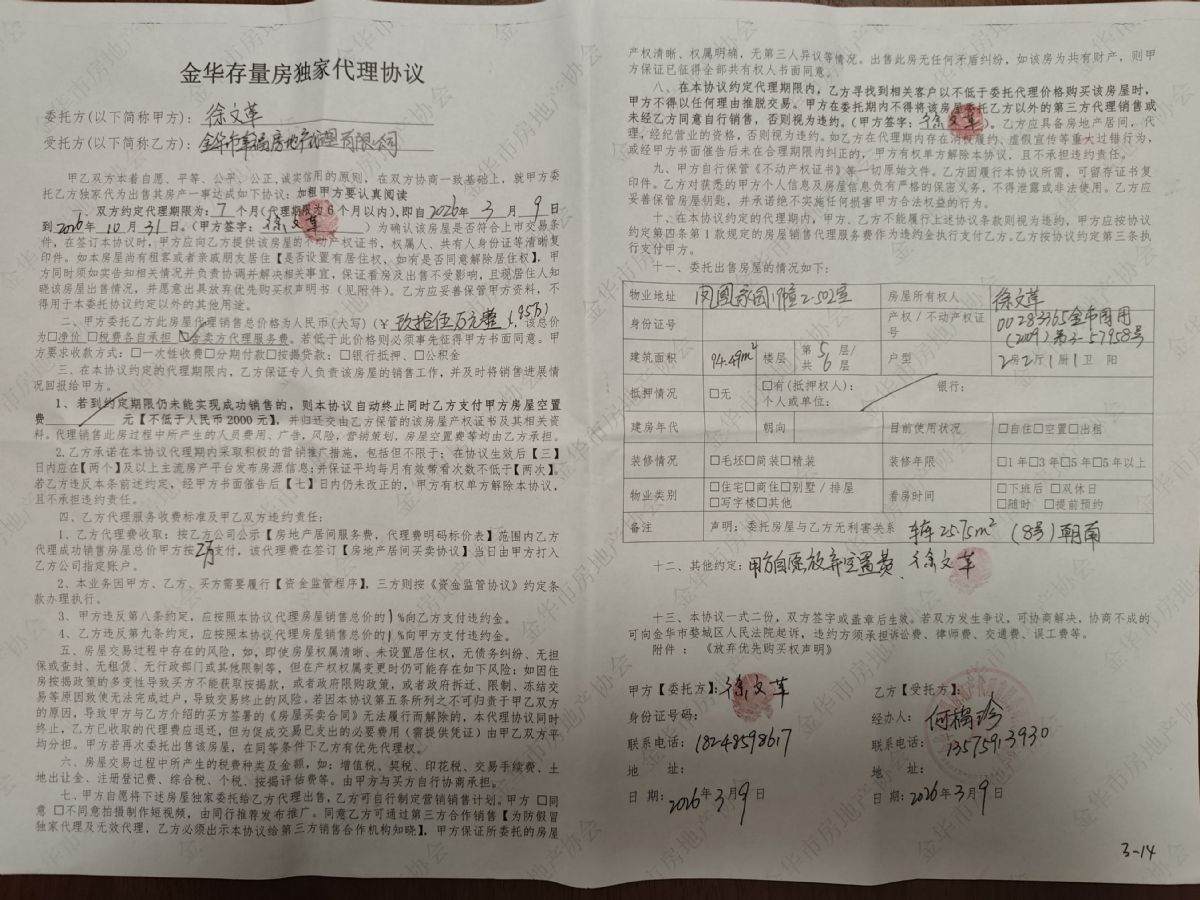 金华存量房独家代理协议
委托方(以下简称甲方)：徐文革
受托方(以下简称乙方)：金华市幸福房地产代理有限公司
甲乙双方本着自愿、平等、公平、公正、诚实信用的原则，在双方协商一致基础上，就甲方委
托乙方独家代为出售其房产一事达成如下协议：加粗甲方要认真阅读
一、双方约定代理期限为：7 个月(代理期限为6个月以内)，即自2026年 3 月 9 日
到2026年 10 月 31 日。(甲方签字：徐文革)为确认该房屋是否符合上市交易条
件，在签订本协议时，甲方应向乙方提供该房屋的不动产权证书，权属人、共有人身份证等清晰复
印件。如本房屋尚有租客或者亲戚朋友居住【是否设置有居住权，如有是否同意解除居住权】，甲
方同时须如实告知相关情况并负责协调并解决相关事宜，保证看房及出售不受影响，且现居住人知
晓该房屋出售情况，并愿意出具放弃优先购买权声明书（见附件）。乙方应妥善保管甲方资料，不
得用于本委托协议约定以外的其他用途。
二、甲方委托乙方此房屋代理销售总价格为人民币(大写)(￥玖拾伍万元整(95万)，该总价
为□净价 □税费各自承担 □含卖方代理服务费。若低于此价格则必须事先征得甲方书面同意。甲
方要求收款方式：□一次性收费□分期付款□按揭贷款：□银行抵押、□公积金
三、在本协议约定的代理期限内，乙方保证专人负责该房屋的销售工作，并及时将销售进展情
况回报给甲方。
1、若到约定期限仍未能实现成功销售的，则本协议自动终止同时乙方支付甲方房屋空置
费 元【不低于人民币 2000 元】，并归还交由乙方保管的该房屋产权证书及其相关资
料。代理销售此房过程中所产生的人员费用、广告，风险，营销策划，房屋空置费等均由乙方承担。
2.乙方承诺在本协议代理期内采取积极的营销推广措施，包括但不限于：在协议生效后【三】
日内应在【两个】及以上主流房产平台发布房源信息；并保证平均每月有效带看次数不低于【两次】。
若乙方违反本条前述约定，经甲方书面催告后【七】日内仍未改正的，甲方有权单方解除本协议，
且不承担违约责任。
四、乙方代理服务收费标准及甲乙双方违约责任：
1、乙方代理费收取：按乙方公司公示【房地产居间服务费，代理费明码标价表】范围内乙方
代理成功销售房屋总价甲方按2万支付，该代理费在签订【房地产居间买卖协议】当日由甲方打入
乙方公司指定账户。
2、本业务因甲方、乙方、买方需要履行【资金监管程序】，三方则按《资金监管协议》约定条
款办理执行。
3、甲方违反第八条约定，应按照本协议代理房屋销售总价的1%向乙方支付违约金。
4、乙方违反第九条约定，应按照本协议代理房屋销售总价的1%向甲方支付违约金。
五、房屋交易过程中存在的风险，如，即使房屋权属清晰、未设置居住权，无债务纠纷、无担
保或查封、无租赁、无行政部门或其他限制等，但在产权权属变更时仍可能存在如下风险：如因住
房按揭政策的多变性导致买方不能获取按揭款，或者政府限购政策，或者政府拆迁、限制、冻结交
易等原因致使无法完成过户，导致交易终止的风险。若因本协议第五条所列之不可归责于甲乙双方
的原因，导致甲方与乙方介绍的买方签署的《房屋买卖合同》无法履行而解除的，本代理协议同时
终止，乙方已收取的代理费应退还，但为促成交易已支出的必要费用(需提供凭证)由甲乙双方平
均分担。甲方若再次委托出售该房屋，在同等条件下乙方有优先代理权。
六、房屋交易过程中所产生的税费种类及金额，如；增值税、契税、印花税、交易手续费、土
地出让金、注册登记费、综合税、个税、按揭评估费等。由甲方与买方自行协商承担。
七、甲方自愿将下述房屋独家委托给乙方代理出售，乙方可自行制定营销销售计划。甲方 □同
意 □不同意拍摄制作短视频，由同行推荐发布推广。同意乙方可通过第三方合作销售【为防假冒
独家代理及无效代理，乙方必须出示本协议给第三方销售合作机构知晓】，甲方保证所委托的房屋
产权清晰、权属明确，无第三人异议等情况。出售此房无任何矛盾纠纷，如该房为共有财产，则甲
方保证已征得全部共有权人书面同意。
八、在本协议约定代理期限内，乙方寻找到相关客户以不低于委托代理价格购买该房屋时，
甲方不得以任何理由推脱交易。甲方在委托期内不得将该房屋委托乙方以外的第三方代理销售或
未经乙方同意自行销售，否则视为违约。(甲方签字：徐文革)。乙方应具备房地产居间，代
理，经纪营业的资格，否则视为违约。如乙方在代理期内存在消极履约、虚假宣传等重大过错行为，
或经甲方书面催告后未在合理期限内纠正的，甲方有权单方解除本协议，且不承担违约责任。
九、甲方自行保管《不动产权证书》等一切原始文件。乙方因履行本协议所需，可留存证书复
印件。乙方对获悉的甲方个人信息及房屋信息负有严格的保密义务，不得泄露或非法使用。乙方应
妥善保管房屋钥匙，并承诺绝不实施任何损害甲方合法权益的行为。
十、在本协议约定的代理期内，甲方、乙方不能履行上述协议条款则视为违约，甲方应按协议
约定第四条第 1 款规定的房屋销售代理服务费作为违约金执行支付乙方。乙方按协议约定第三条执
行支付甲方。
十一、委托出售房屋的情况如下：
物业地址 凤凰家园17幢2-502室 房屋所有权人 徐文革
身份证号 产权/不动产权证号 00283365金市国用(2009)第3-57958号
建筑面积 94.49m² 楼层 第5层/共6层 户型 2房2厅1厨1卫 阳
抵押情况 □无 □有(抵押权人)： 银行：
个人或单位：
建房年代 朝向 目前使用状况 □自住□空置□出租
装修情况 □毛坯□简装□精装 装修年限 □1年□3年□5年□5年以上
物业类别 □住宅□商住□别墅/排屋 □写字楼□其他 看房时间 □下班后 □双休日 □随时 □提前预约
备注 声明：委托房屋与乙方无利害关系 车库25.75m² (8号)朝南
十二、其他约定：甲方自愿放弃空置费、徐文革
十三、本协议一式二份，双方签字或盖章后生效。若双方发生争议，可协商解决，协商不成的
可向金华市婺城区人民法院起诉，违约方须承担诉讼费、律师费、交通费、误工费等。
附件：《放弃优先购买权声明》
甲方【委托方】：徐文革 乙方【受托方】：
身份证号码： 经办人：何梅珍
联系电话：18248598617 联系电话：13575913930
地 址： 地 址：
日 期：2026年3月9日 日 期：2026年3月9日
3-14